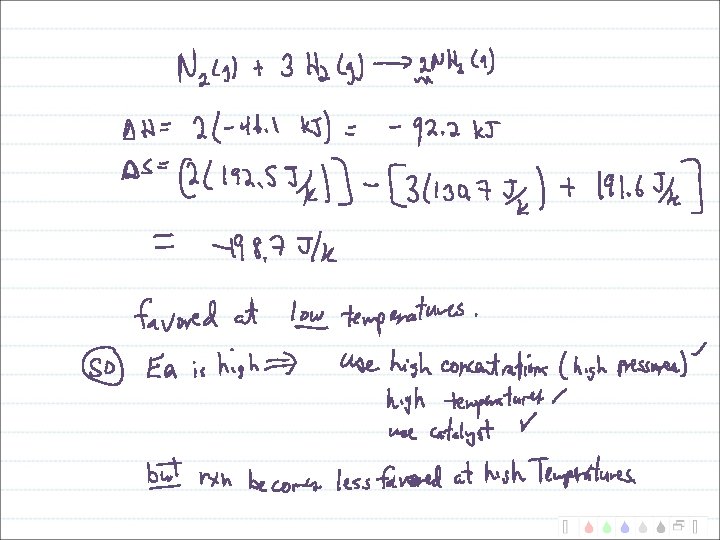 N₂(g) + 3 H₂(g) → 2NH₃(g)
ΔH = 2(-46.1 kJ) = -92.2 kJ
ΔS = [2(192.5 J/k)] - [3(130.7 J/k) + 191.6 J/k]
= -198.7 J/k
favored at low temperatures.
SO Ea is high ⇒ use high concentrations (high pressures) ✓
high temperatures ✓
use catalyst ✓
but rxn becomes less favored at high Temperatures.